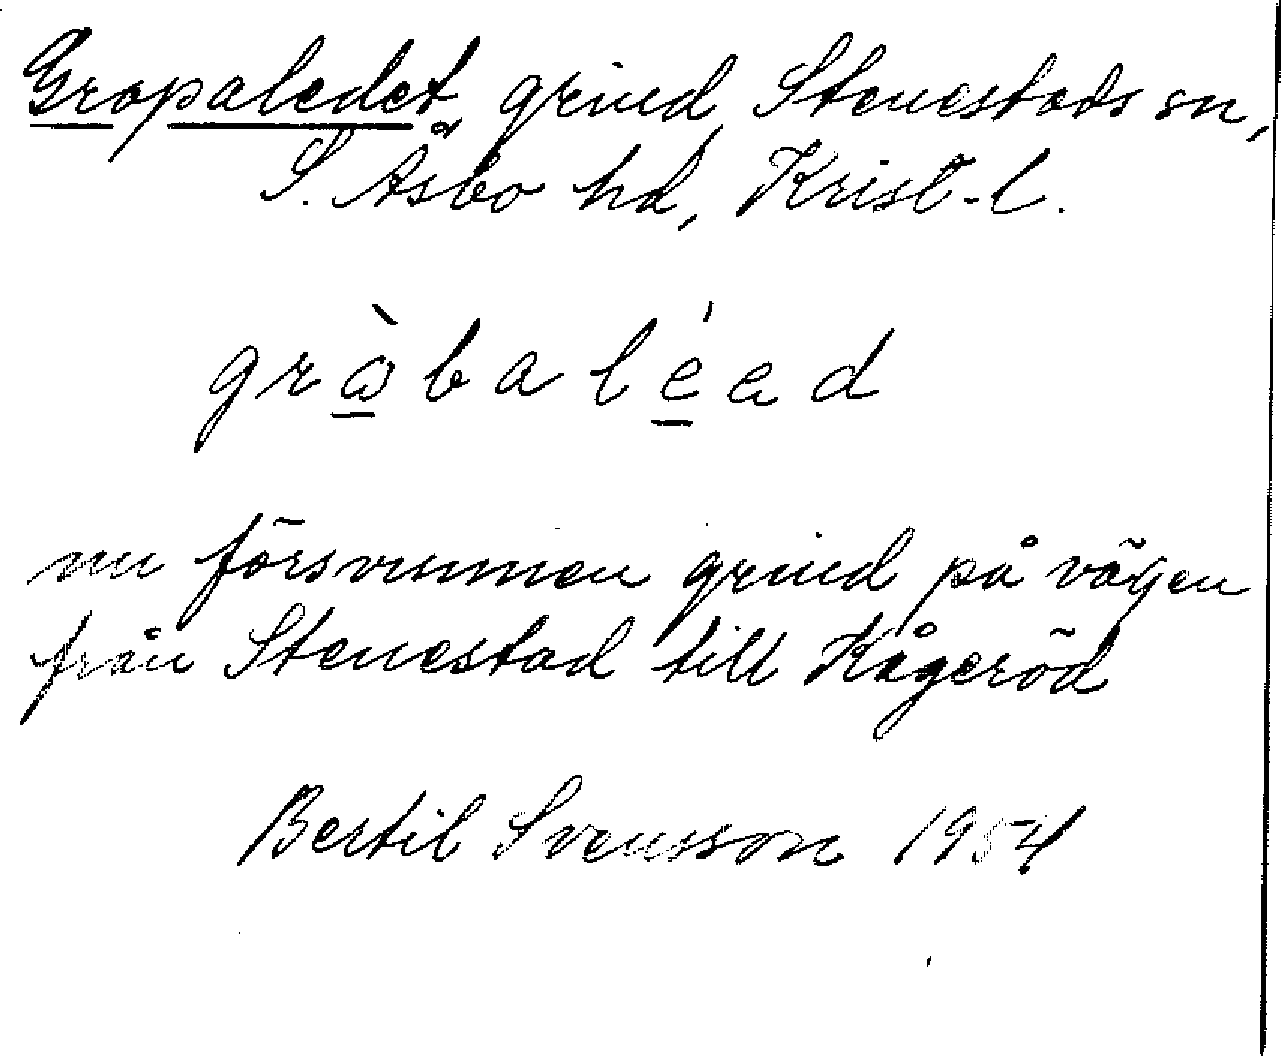 Gropaledet, grind, Stenestads sn,
S. Åsbo hd, Krist-l.
grὰbaléad
nu försvunnen grind på vägen
från Stenestad till Kågeröd
Bertil Svensson 1954